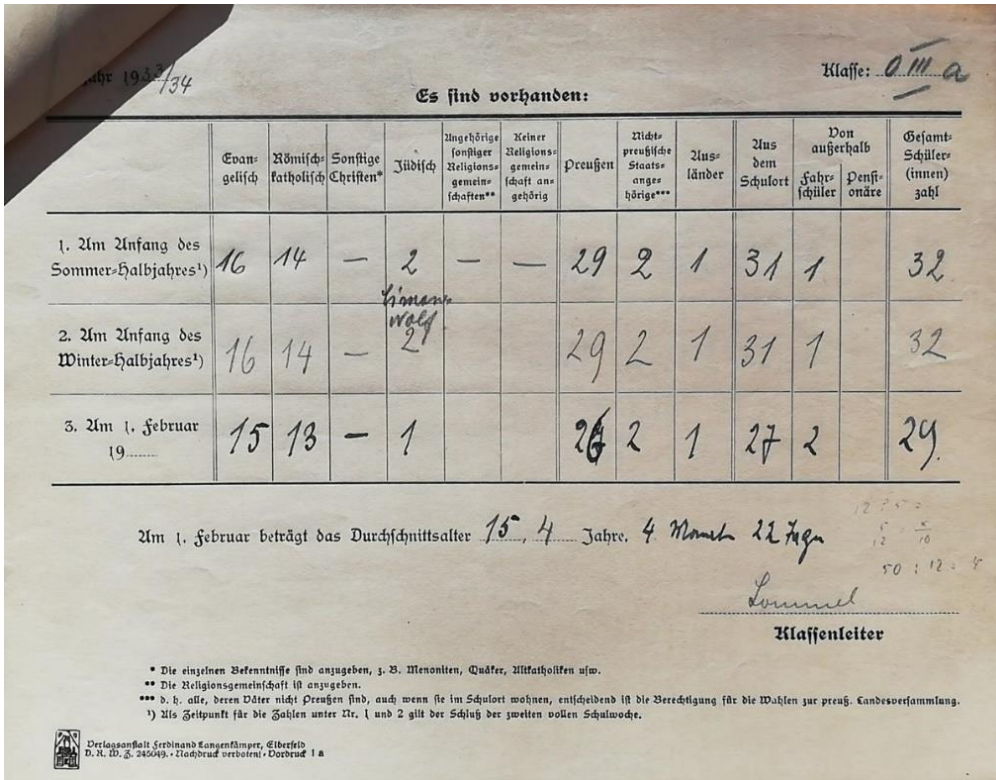 ahr 1933/34
Klasse: O III a
Es sind vorhanden:
Evan-
gelisch
Römisch-
katholisch
Sonstige
Christen*
Jüdisch
Angehörige
sonstiger
Religions-
gemein-
schaften**
Keiner
Religions-
gemein-
schaft an-
gehörig
Preußen
Nicht-
preußische
Staats-
ange-
hörige***
Aus-
länder
Aus
dem
Schulort
Von
außerhalb
Fahr-
schüler
Pensi-
onäre
Gesamt-
Schüler-
(innen)
zahl
1. Am Anfang des
Sommer-Halbjahres¹) 16 14 — 2 — — 29 2 1 31 1 32
Simon
Wolf
2. Am Anfang des
Winter-Halbjahres¹) 16 14 — 2 29 2 1 31 1 32
3. Am 1. Februar
19...... 15 13 — 1 26 2 1 27 2 29.
Am 1. Februar beträgt das Durchschnittsalter 15, 4 Jahre. 4 Monate 22 Tage
50 : 12 =
Lommel
Klassenleiter
* Die einzelnen Bekenntnisse sind anzugeben, z. B. Menoniten, Quäker, Altkatholiken usw.
** Die Religionsgemeinschaft ist anzugeben.
*** d. h. alle, deren Väter nicht Preußen sind, auch wenn sie im Schulort wohnen, entscheidend ist die Berechtigung für die Wahlen zur preuß. Landesversammlung.
¹) Als Zeitpunkt für die Zahlen unter Nr. 1 und 2 gilt der Schluß der zweiten vollen Schulwoche.
Verlagsanstalt Ferdinand Langenkämper, Elberfeld
D. R. W. Z. 245049. · Nachdruck verboten! · Vordruck 1 a